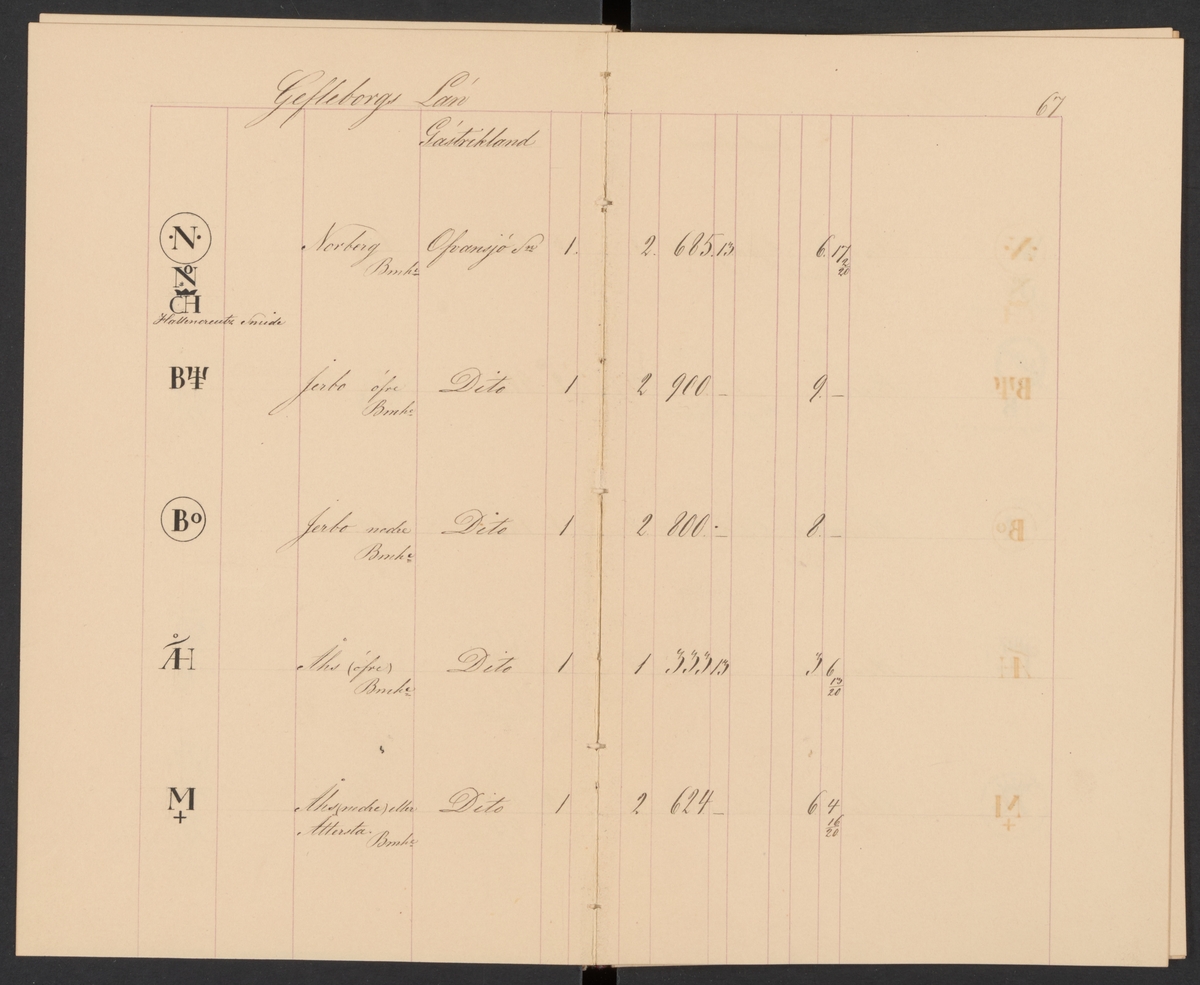 Gefleborgs Län
67
Gästrikland
·N·
Norberg Ofvansjö Sn 1. 2. 685.13 6.17
Bruk 2/20
N
CH
Smide
B
Jerbo öfre Dito 1 2 900 — 9. —
Bruk
Bo
Jerbo nedre Dito 1 2 800 — 8. —
Bruk
ÅH
Åhs (öfre) Dito 1 1 333 13 3 6
Bruk 13/20
M
+
Åhs (nedre) eller Dito 1 2 624 — 6 4
Attersta Bruk 16/20